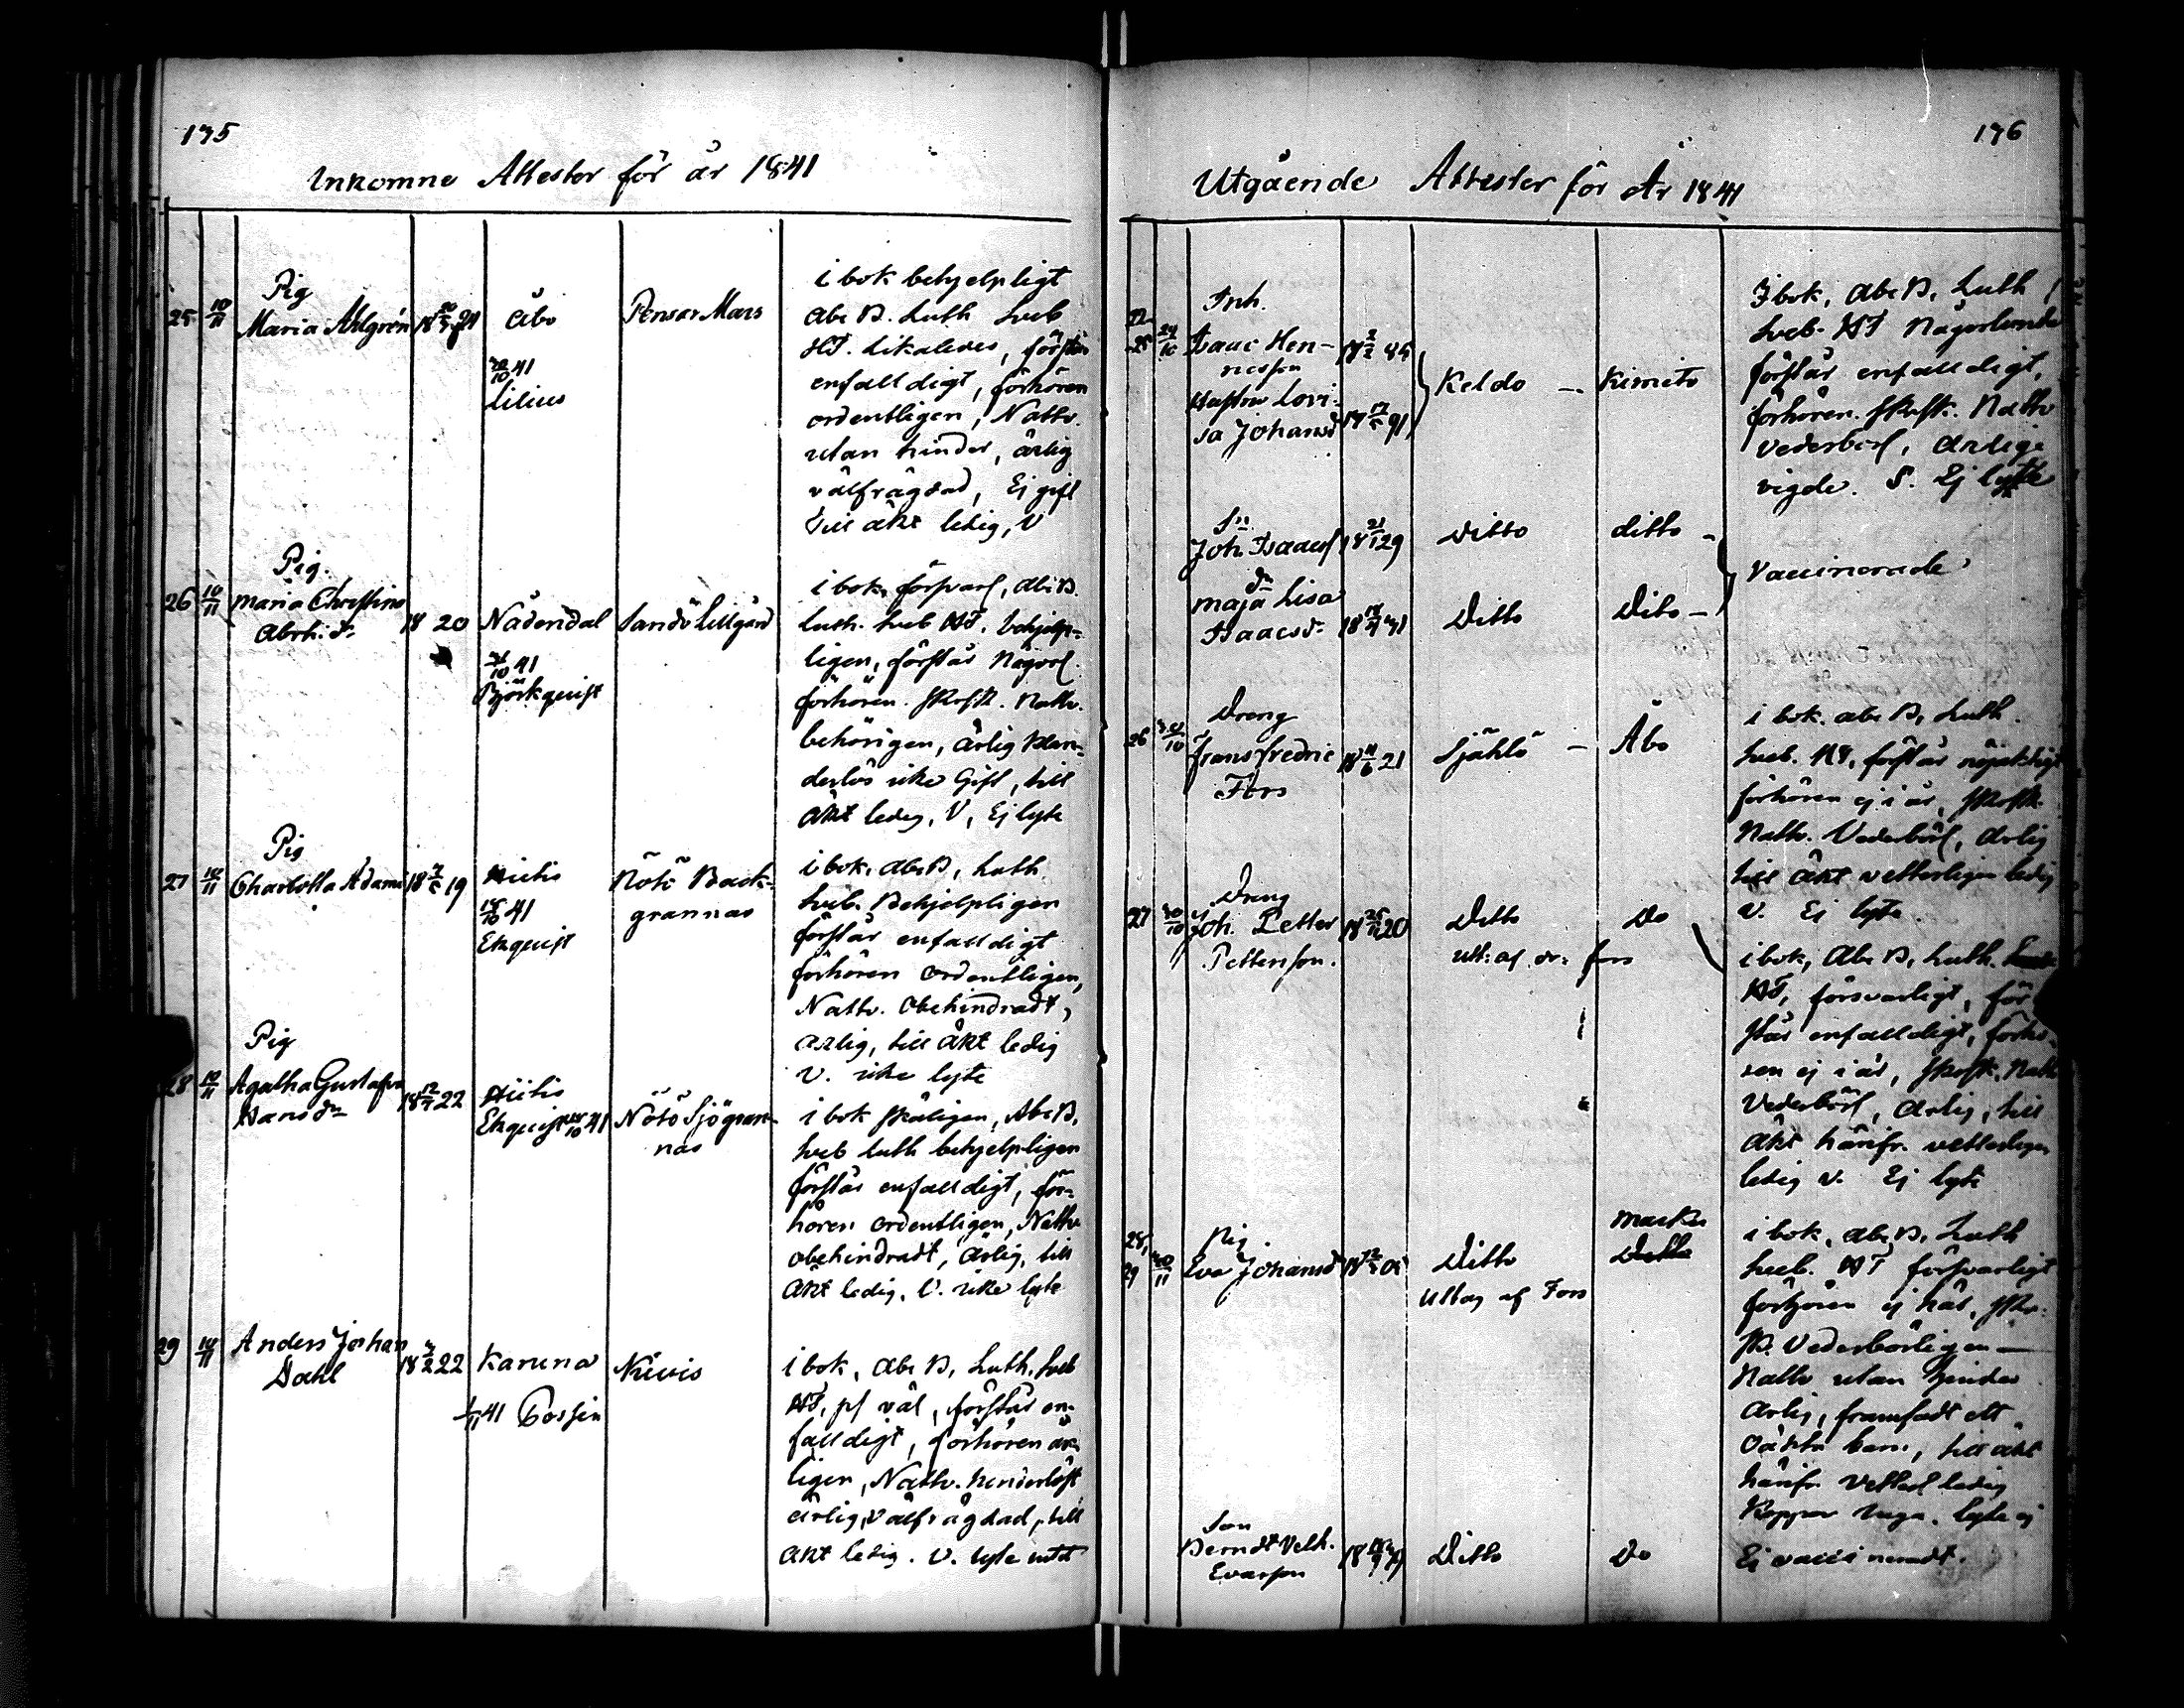 175
Inkomne Attester för år 1841
25 10/11 Pig
Maria Ahlgrén
Åbo
20/10 41
Lilius
Pensar Mars
i bok behjelpligt
Abc B. Luth Sveb
HT. Likaledes, förstår
enfalldigt, förhören
ordentligen, Nattv.
utan hinder, ärlig
välfrägdad, Ej gift
till äkt ledig, V
26 10/11 Pig.
Maria Christina
Abrh. dr
18 20
Nådendal
10 41
Björkquist
Sandö Lillgård
i bok försvarl, Abc B.
Luth. Sveb HT. behjelp-
ligen, förstår Någorl.
förhören. Skrift. Nattv.
behörigen, ärlig klan-
derlös icke Gift, till
äkt ledig, V, Ej lyte
27 10/11 Pig
Charlotta Adams
18 19
Hitis
10 41
Ekquist
Nötö Back-
grannas
i bok, Abc B, Luth
Sveb. Behjelpligen
förstår enfalldigt
förhören ordentligen,
Nattv. Obehindradt,
ärlig, till äkt ledig
V. icke lyte
28 10/11 Pig
Agatha Gustafva
Hansdr
18 12/7 22
Hitis
Ekquist 10 41
Nötö Sjögran-
nas
i bok skäligen, Abc B,
Sveb Luth behjelpligen
förstår enfalldigt, för-
hören ordentligen, Nattv
obehindradt, ärlig, till
äkt ledig, V. icke lyte
29 10/11
Anders Johan
Dahl
18 22
Karuna
1/11 41
Nåvis
i bok, Abc B, Luth. Sveb
HT, väl, förstår en-
falldigt, förhören är-
ligen, Nattv. hinderlöst
ärlig, välfrägdad, till
äkt ledig. V. lyte
176
Utgående Attester för År 1841
25 24/10
Inh.
Isaac Hen-
ricsson
Hustru Lovi-
sa Johansd
Keldo — Kimito
I bok, Abc B, Luth
Sveb. HT Någorlunda
förstår enfalldigt,
förhören. Skrift. Nattv
vederbörl, ärlige
vigde. S. Ej lyte
Sn
Joh. Isaacs
18 21/1 29
Ditto ditto —
Vaccinerade
dr
Maja Lisa
Isaacsdr
Ditto Dito —
26 30/10
Dreng
Frans Fredric
Fors
18 11/6 21
Sjählö — Åbo
i bok. Abc B, Luth.
Sveb. HT, förstår nöjaktligt
förhören ej i år, Skrift.
Nattv. Vederbörl, ärlig
till äkt vetterligen ledig
V. Ej lyte
27 30/10
Dreng
Joh. Petter
Pettersson.
18 25/11 20
Ditto Do
utt. af dr. fors
i bok, Abc B, Luth.
HT, försvarligt, för
står enfalldigt, förhö-
ren ej i år, Skrift. Nattv
Vederbörl, ärlig, till
äkt härifr. vetterligen
ledig V. Ej lyte
28,
29
Pig.
Eva Johansd
Ditto
Uttag af Fors
Masku
Ditto
i bok, Abc B, Luth
Sveb. HT försvarligt
förhören ej här, Skr.
Vederbörligen —
Nattv utan hinder
ärlig, framfödt ett
oäkta barn, till äkt
härifr. ledig
Koppor lyte ej
Son
Berndt Velh.
Evasson
Ditto Do
Ej vaccineradt.